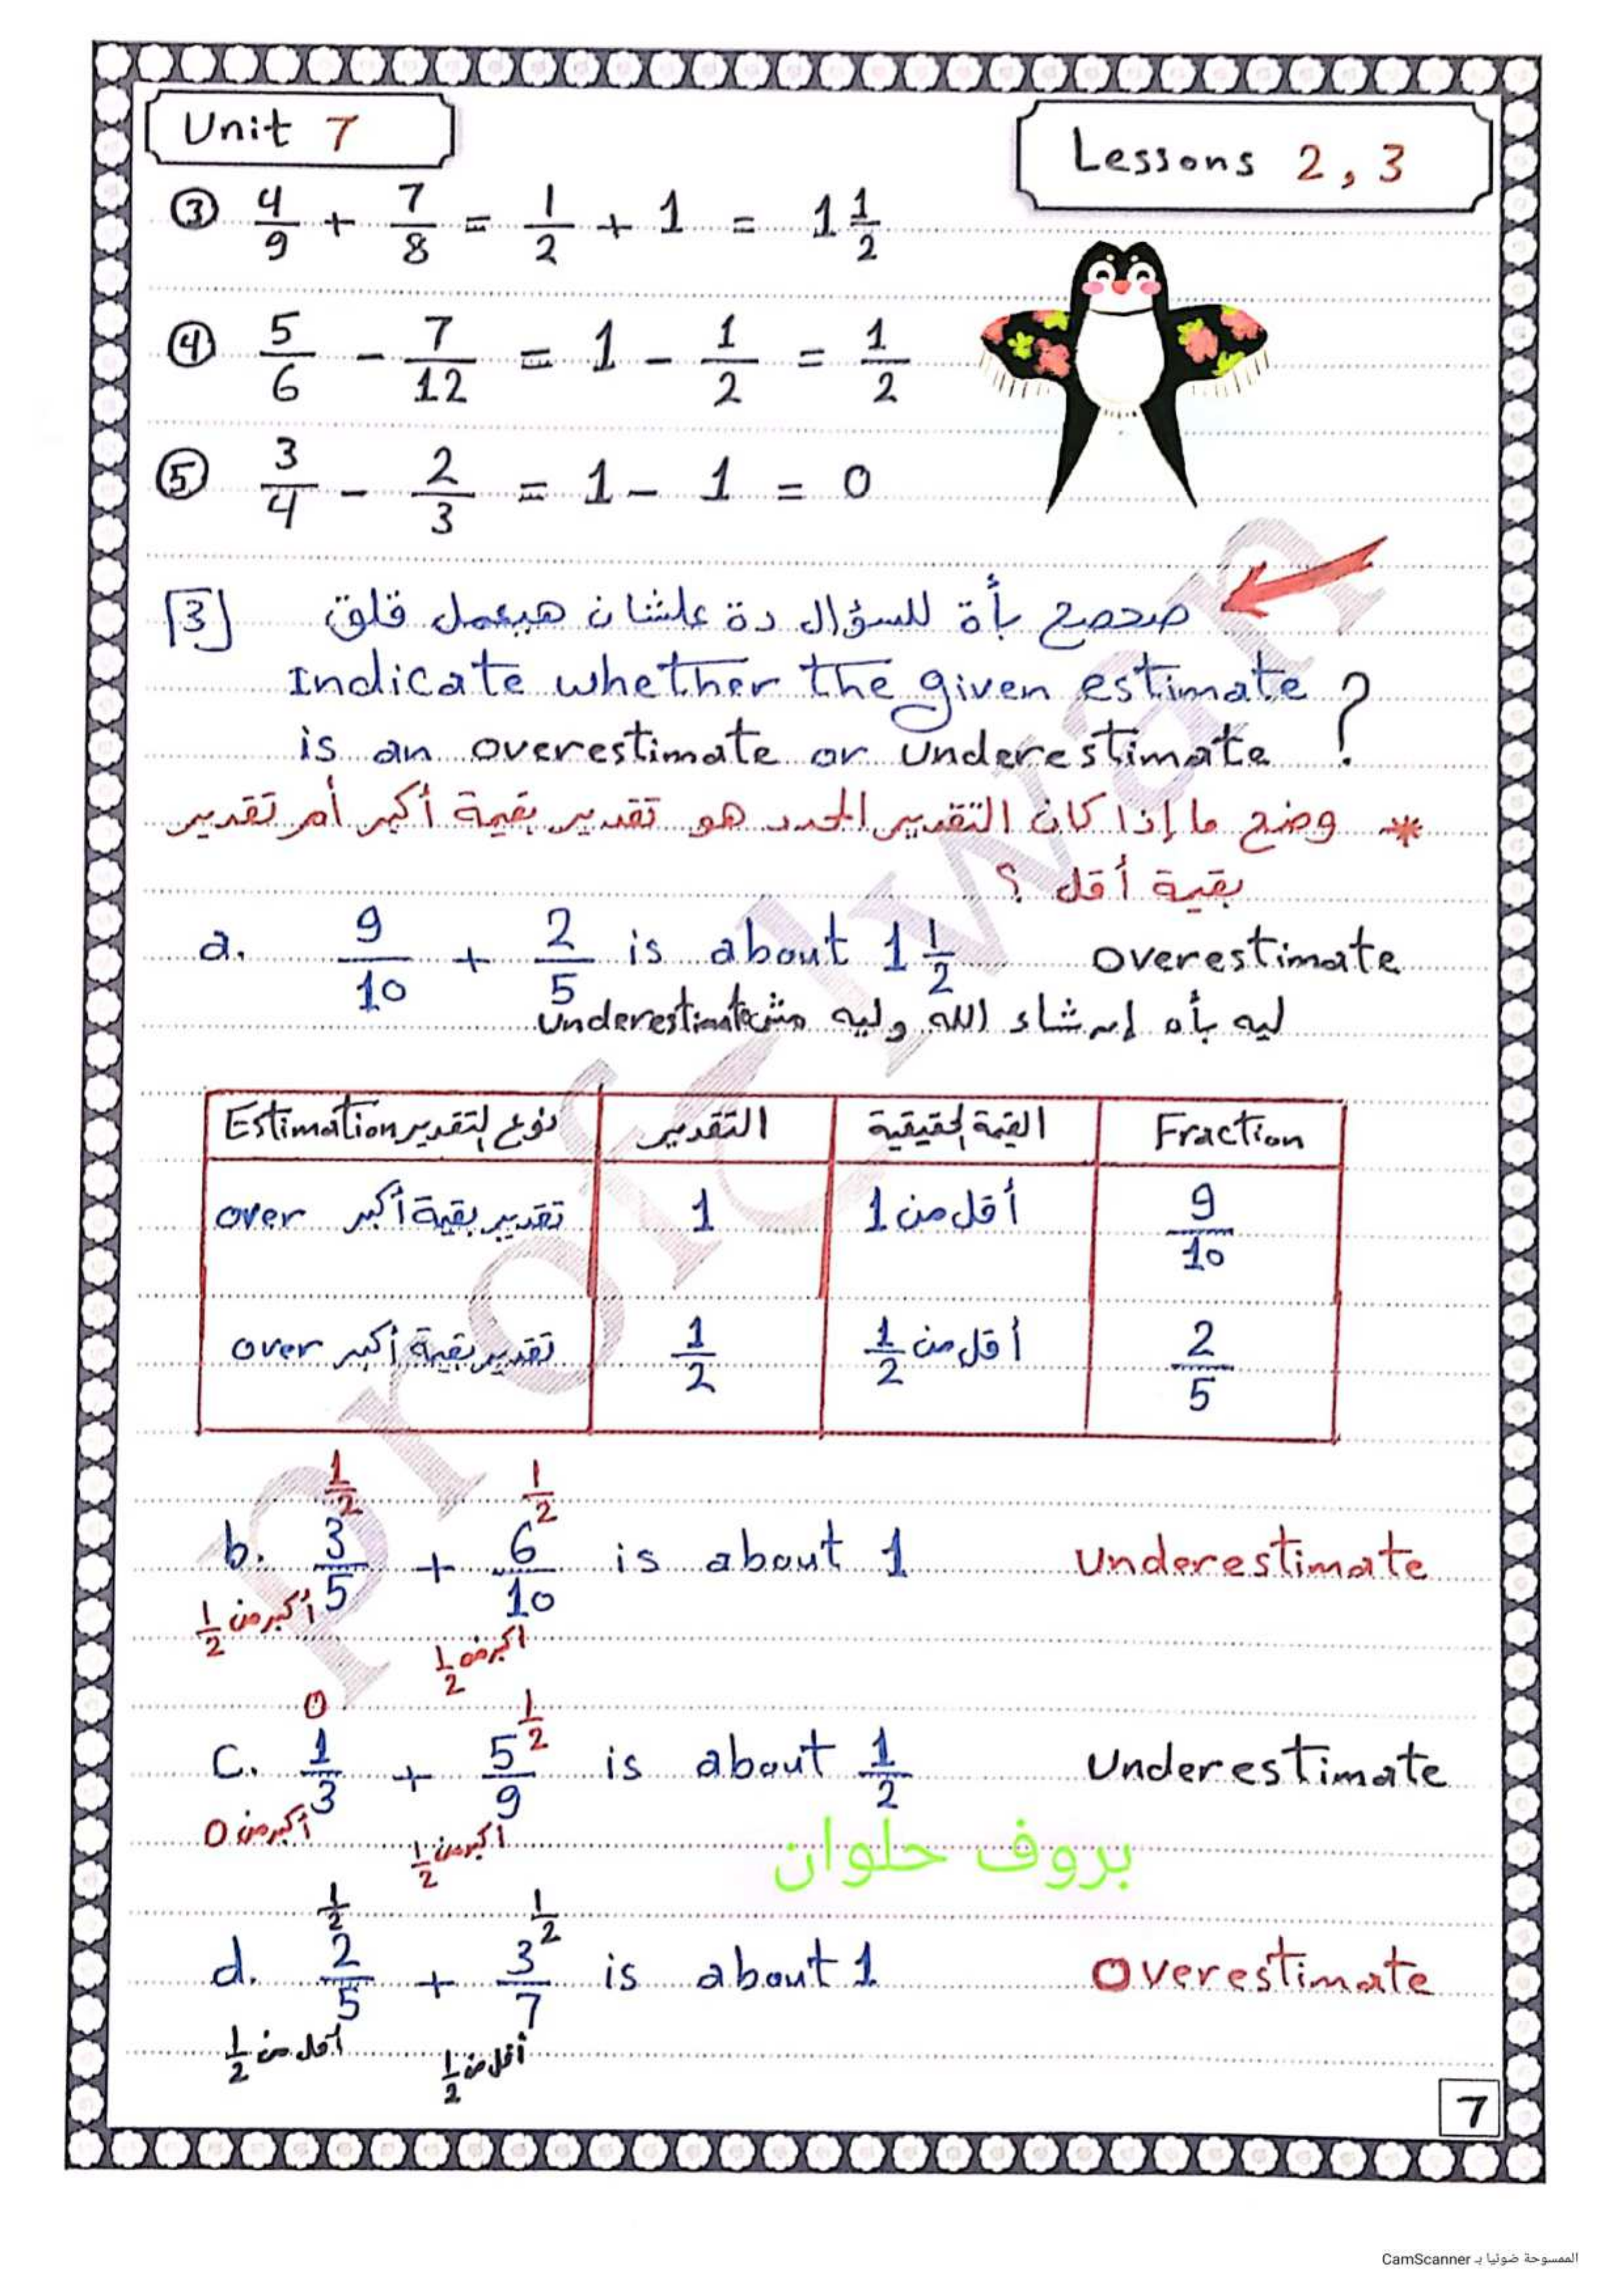 Unit 7
Lessons 2, 3
③ 4/9 + 7/8 = 1/2 + 1 = 1 1/2
④ 5/6 - 7/12 = 1 - 1/2 = 1/2
⑤ 3/4 - 2/3 = 1 - 1 = 0
[3] صحصح بأة للسؤال دة علشان هيعمل قلق
Indicate whether the given estimate
is an overestimate or underestimate ?
* وضح ما إذا كان التقدير المحدد هو تقدير بقيمة أكبر أم تقدير
بقيمة أقل ؟
a. 9/10 + 2/5 is about 1 1/2 overestimate
ليه بأه إن شاء الله وليه مش underestimate
Estimation نوع التقدير التقدير القيمة الحقيقية Fraction
over تقدير بقيمة أكبر 1 أقل من 1 9/10
over تقدير بقيمة أكبر 1/2 أقل من 1/2 2/5
1/2 1/2
b. 3/5 + 6/10 is about 1 Underestimate
أكبر من 1/2 أكبر من 1/2
0 1/2
c. 1/3 + 5/9 is about 1/2 Underestimate
أكبر من 0 أكبر من 1/2
بروف حلوان
1/2 1/2
d. 2/5 + 3/7 is about 1 Overestimate
أقل من 1/2 أقل من 1/2
7
prof elwan
الممسوحة ضوئيا بـ CamScanner